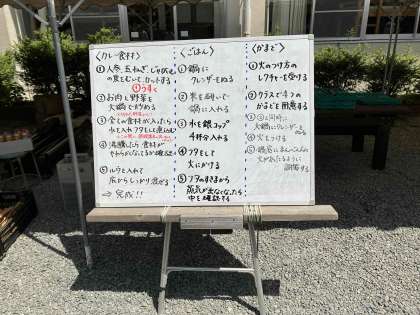 〈カレー食材〉
① 人参、玉ねぎ、じゃがいも
の皮をむいて、カットする
① うすく
② お肉と野菜を
大鍋で炒める
③ 全ての食材が入ったら
水を入れフタをして煮込む
④ 沸騰したら食材が
やわらかくなってるか確認
⑤ ルウを入れて
底からしっかり混ぜる
⇒ 完成!!
〈ごはん〉
① 鍋に
クレンザーをぬる
② 米を研いで
鍋に入れる
③ 水を銀コップ
4杯分入れる
④ フタをして
火にかける
⑤ フタのすきまから
蒸気が出なくなったら
中を確認する
〈かまど〉
① 火のつけ方の
レクチャーを受ける
② クラスで4つの
かまどを用意する
③ と同時に
大鍋にクレンザーを
ぬる
④ 火をつける
⑤ 鍋底にまんべんなく
火が当たるように
調節する